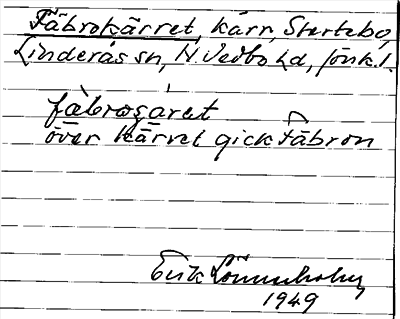 Fäbrokärret, kärr, Stertebo,
Linderås sn, N. Vedbo hd, Jönk. l.
över kärret gick Fäbron
Erik Lönnerholm
1949